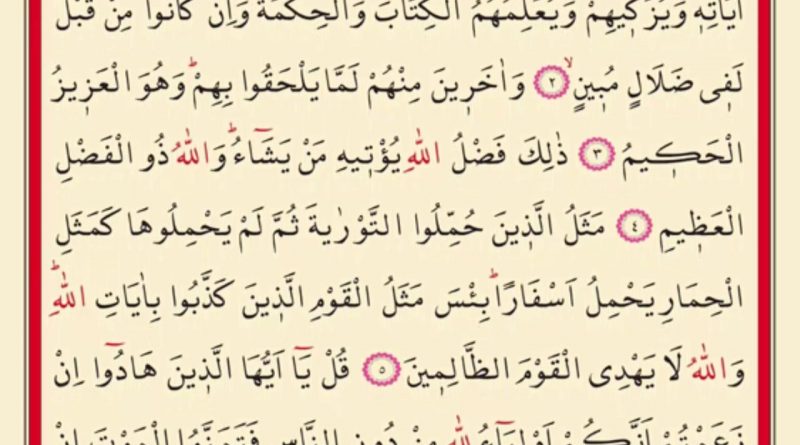 اٰيَاتِه۪ وَيُزَكّ۪يهِمْ وَيُعَلِّمُهُمُ الْكِتَابَ وَالْحِكْمَةَ وَاِنْ كَانُوا مِنْ قَبْلُ
لَف۪ي ضَلَالٍ مُب۪ينٍۙ ﴿٢﴾ وَاٰخَر۪ينَ مِنْهُمْ لَمَّا يَلْحَقُوا بِهِمْۜ وَهُوَ الْعَز۪يزُ
الْحَك۪يمُ ﴿٣﴾ ذٰلِكَ فَضْلُ اللّٰهِ يُؤْت۪يهِ مَنْ يَشَٓاءُۜ وَاللّٰهُ ذُو الْفَضْلِ
الْعَظ۪يمِ ﴿٤﴾ مَثَلُ الَّذ۪ينَ حُمِّلُوا التَّوْرٰيةَ ثُمَّ لَمْ يَحْمِلُوهَا كَمَثَلِ
الْحِمَارِ يَحْمِلُ اَسْفَارًاۜ بِئْسَ مَثَلُ الْقَوْمِ الَّذ۪ينَ كَذَّبُوا بِاٰيَاتِ اللّٰهِۜ
وَاللّٰهُ لَا يَهْدِي الْقَوْمَ الظَّالِم۪ينَ ﴿٥﴾ قُلْ يَٓا اَيُّهَا الَّذ۪ينَ هَادُٓوا اِنْ
زَعَمْتُمْ اَنَّكُمْ اَوْلِيَٓاءُ لِلّٰهِ مِنْ دُونِ النَّاسِ فَتَمَنَّوُا الْمَوْتَ اِنْ